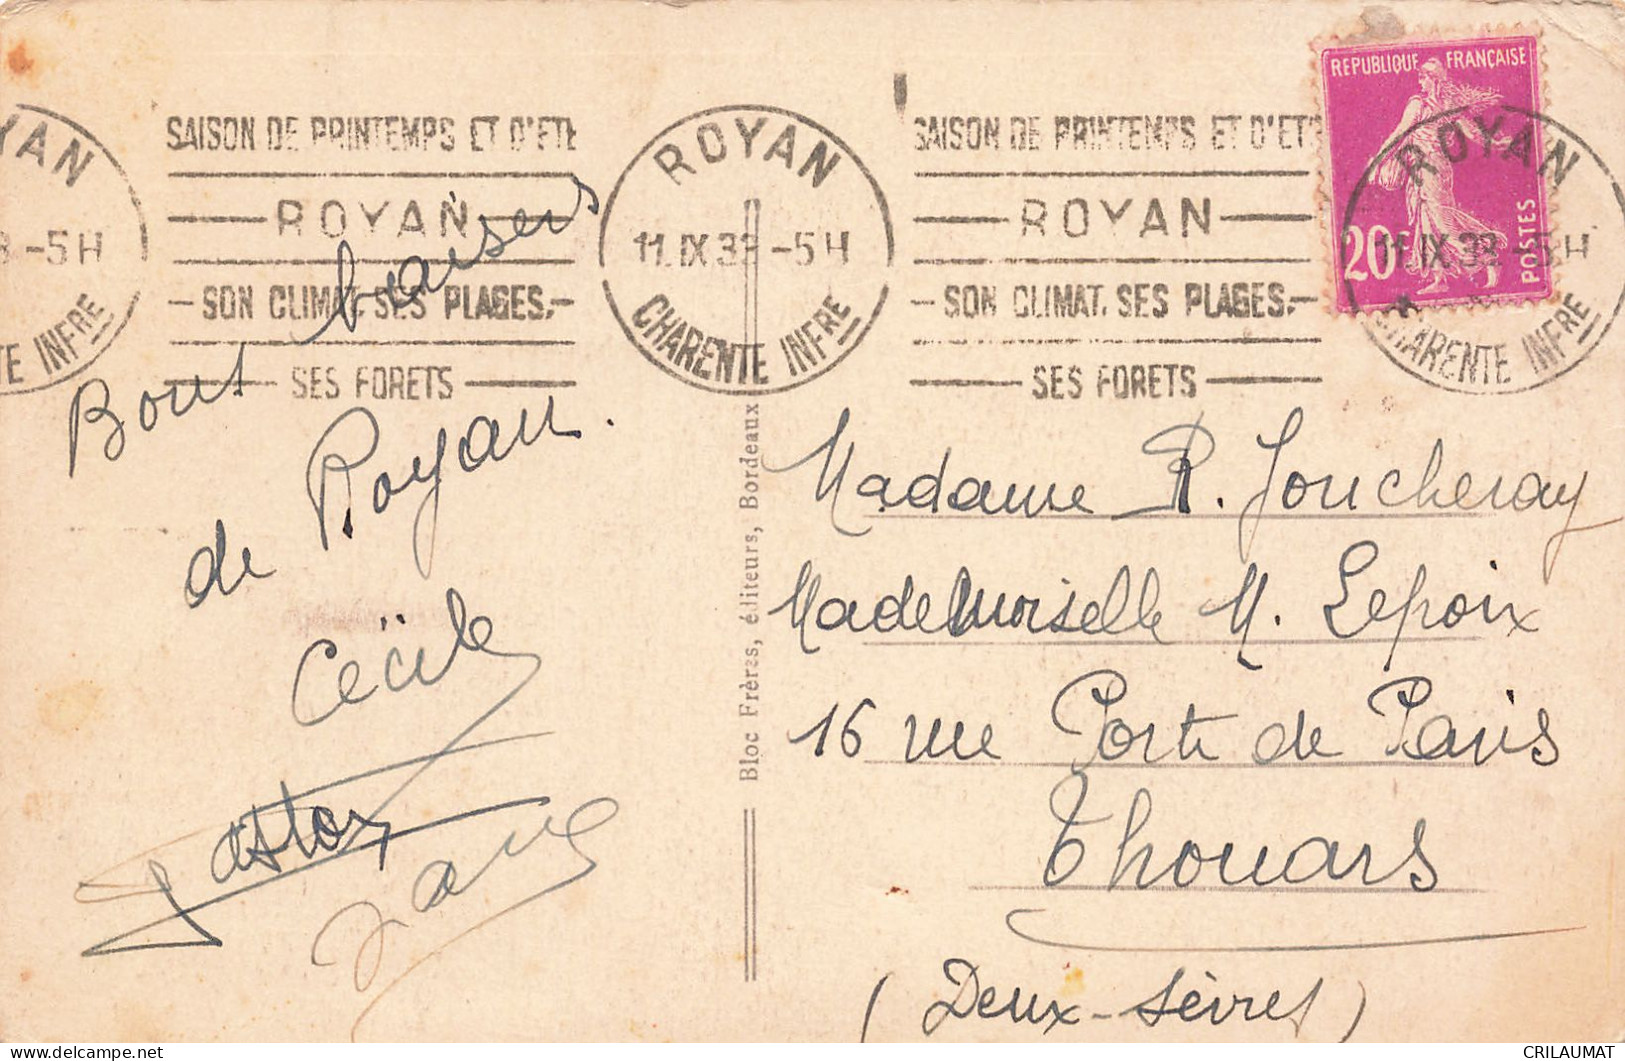 YAN
-5H
TE INFRE
SAISON DE PRINTEMPS ET D'ETE
ROYAN
SON CLIMAT. SES PLAGES.
SES FORETS
ROYAN
11.IX 33 -5H
CHARENTE INFRE
SAISON DE PRINTEMPS ET D'ETE
ROYAN
SON CLIMAT. SES PLAGES.
SES FORETS
REPUBLIQUE FRANÇAISE
20c
POSTES
ROYAN
11.IX 33 -5H
CHARENTE INFRE
Bons baisers
de Royan.
Cécile
Bloc Frères, éditeurs, Bordeaux
Madame R. Joucheray
Mademoiselle M. Lepoix
16 rue Porte de Paris
Thouars
(Deux-Sèvres)
CRILAUMAT